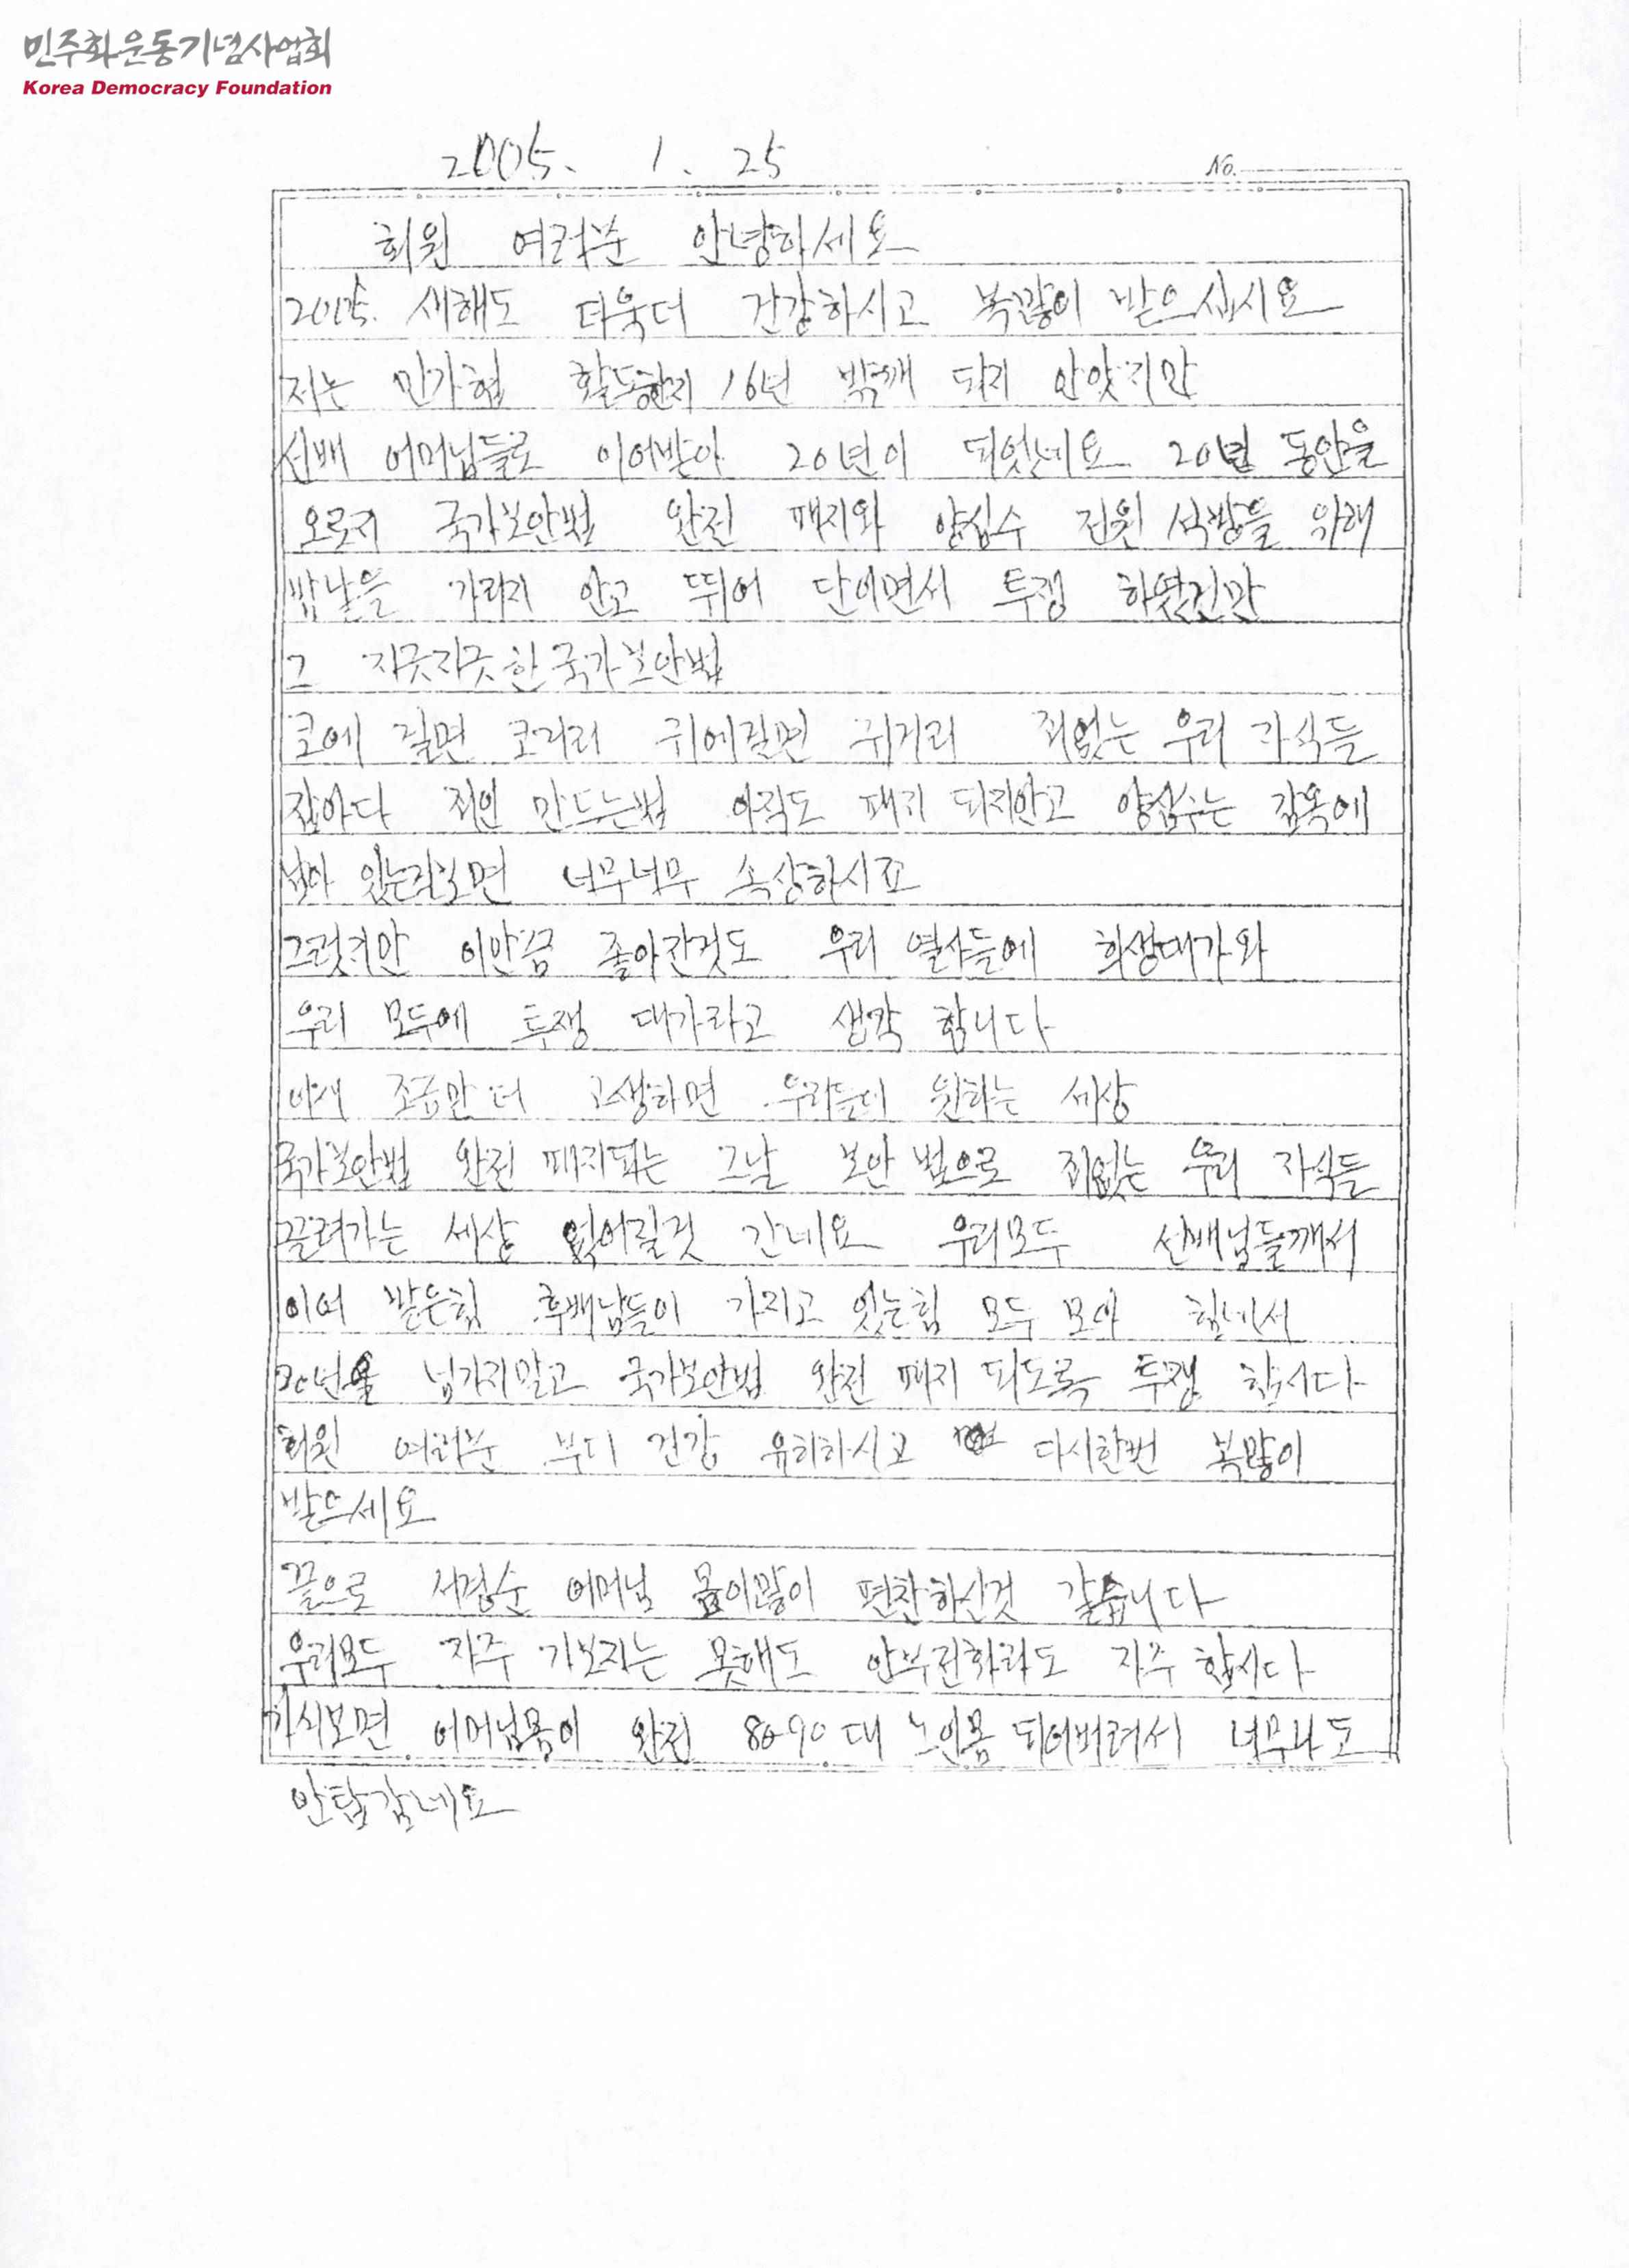 민주화운동기념사업회
Korea Democracy Foundation
2005. 1. 25
No.
회원 여러분 안녕하세요
2005. 새해도 더욱더 건강하시고 복많이 받으십시요
저는 민가협 활동한지 16년 밖깨 되지 안앗지만
선배 어머님들로 이어받아 20년이 되엇네요 20년 동안을
오로지 국가보안법 완전 패지와 양심수 전원 석방을 위해
밤낮을 가리지 안고 뛰어 단이면서 투쟁 하였건만
그 지긋지긋한 국가보안법
코에 걸면 코거리 귀에걸면 귀거리 죄없는 우리 자식들
잡아다 죄인 만드는법 아직도 패지 되지안고 양심수는 감옥에
남아 있는걸보면 너무너무 속상하시죠
그렇지만 이만끔 좋아진것도 우리 열사들에 희생대가와
우리 모두에 투쟁 대가라고 생각 합니다
이재 조금만 더 고생하면 우리들이 원하는 세상
국가보안법 완전 패지되는 그날 보안법으로 죄없는 우리 자식들
끌려가는 세상 없어질것 갓네요 우리모두 선배님들깨서
이어 받은힘 후배님들이 가지고 있는힘 모두 모아 힘내서
20년을 넘기지말고 국가보안법 완전 패지 되도록 투쟁 합시다
회원 여러분 부디 건강 유히하시고 다시한번 복많이
받으세요
끝으로 서경순 어머님 몸이많이 편찬하신것 갈습니다
우리모두 자주 가보지는 못해도 안부전화라도 자주 합시다
가서보면 어머님몸이 완전 80-90대 노인몸 되어버려서 너무나도
안탑갑네요